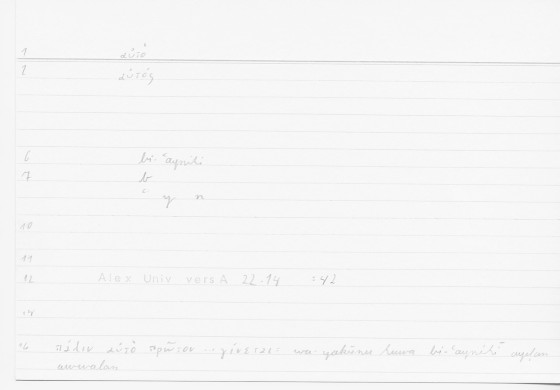 1 αὐτὸ
2 αὐτός
6 bi-ʿaynihi
7 b
ʿ y n
10
11
12 Alex Univ. vers A 22.14 = 42
14
16 πάλιν αὐτὸ πρῶτον ... γίνεται wa-yakūnu huwa bi-ʿaynihī ayḍan
awwalan